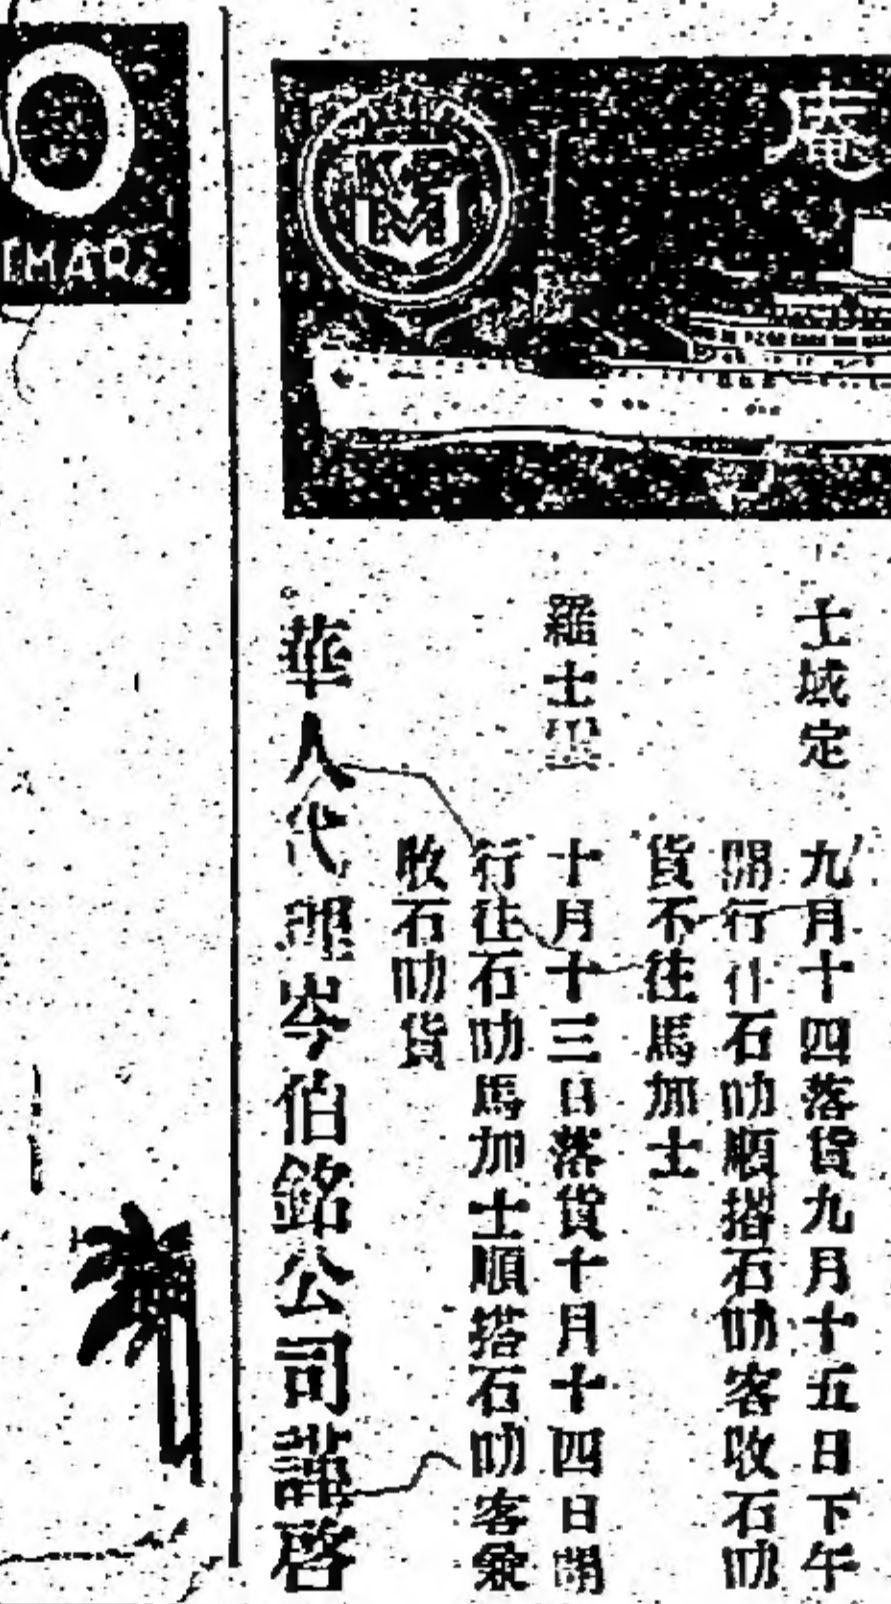 庵
士域定
九月十四落貨九月十五日下午
開行往石叻順搭石叻客收石叻
貨不往馬加士
羅士
十月十三日落貨十月十四日開
行往石叻馬加士順搭石叻客兼
收石叻貨
華人代理岑伯銘公司謹啓
IMAR